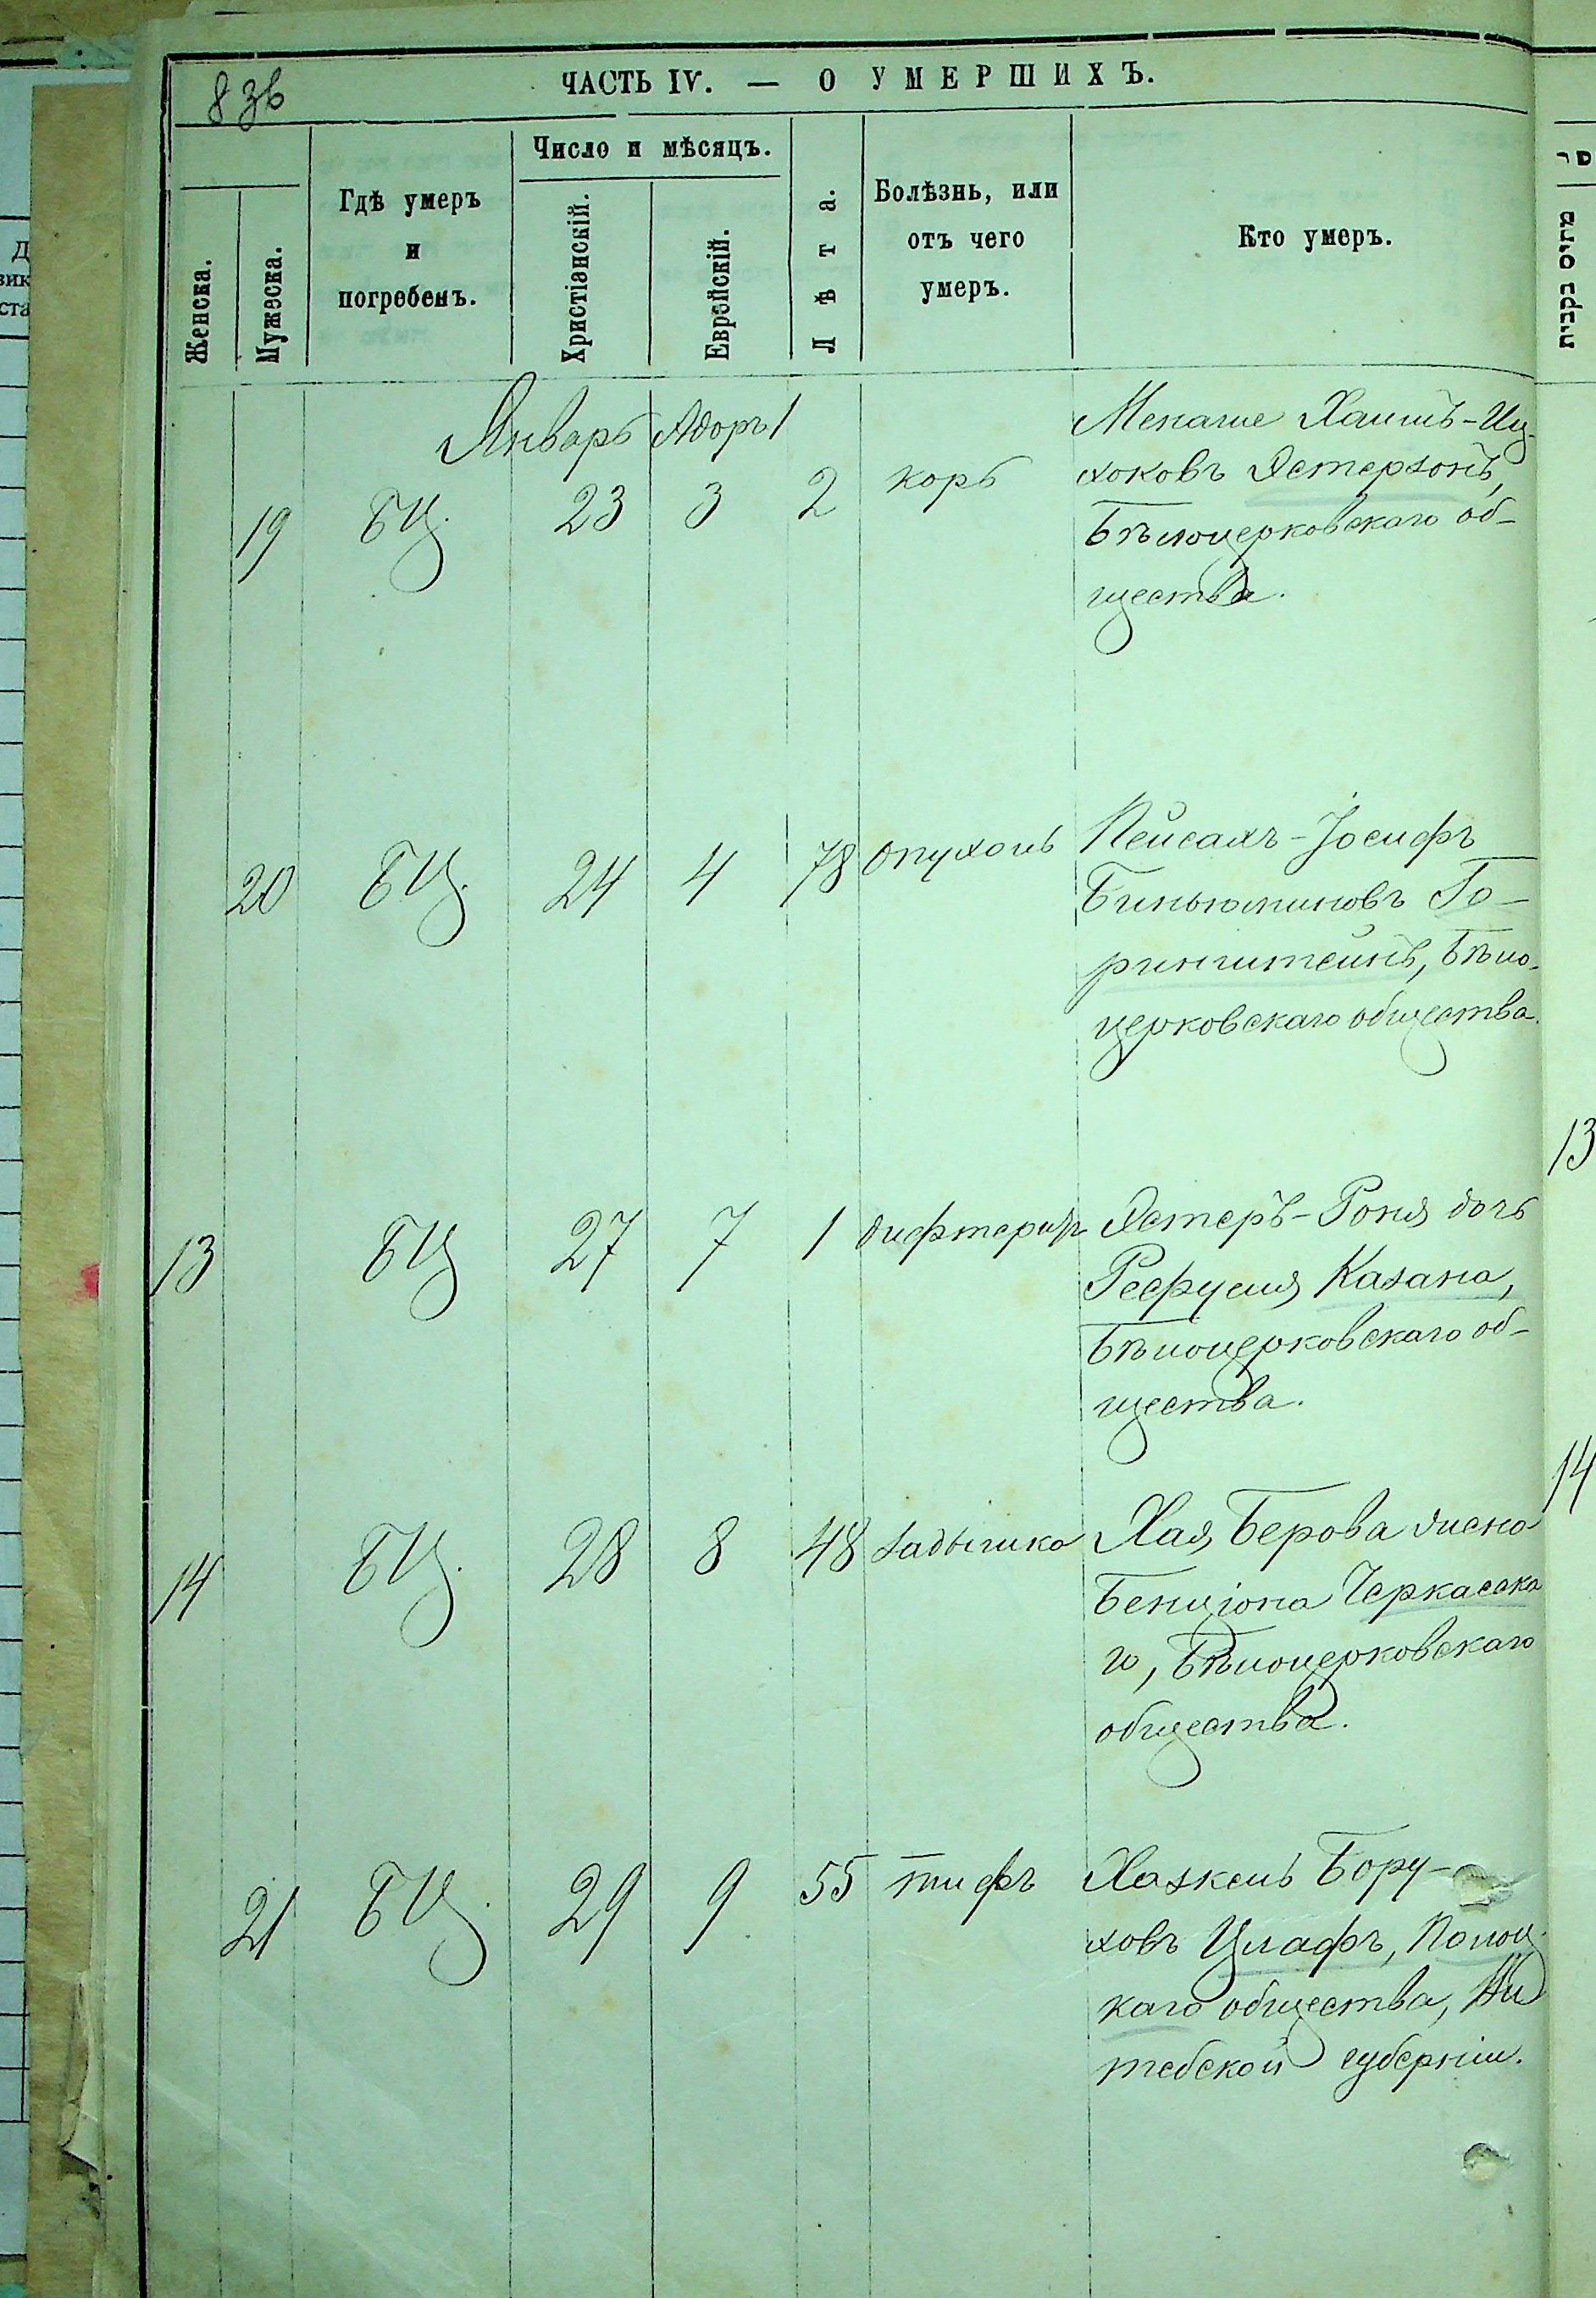 8 зв
ЧАСТЬ IV. — О УМЕРШИХЪ.
Женска.
Мужеска.
Гдѣ умеръ
и
погребенъ.
Число и мѣсяцъ.
Христіанскій.
Еврейскій.
Лѣта.
Болѣзнь, или
отъ чего
умеръ.
Кто умеръ.
Январь Адоръ 1
19 БЦ. 23 3 2 корь
Менаше Хаимъ-Иц-
хоковъ Эстерзонъ,
Бѣлоцерковскаго об-
щества.
20 БЦ. 24 4 78 опухоль
Пейсахъ-Іосифъ
Биньюминовъ Го-
ринштейнъ, Бѣло-
церковскаго общества.
13 БЦ 27 7 1 дифтеритъ
Эстеръ-Роня дочь
Рефуеля Казана,
Бѣлоцерковскаго об-
щества.
14 БЦ. 28 8 48 задышка
Хая Берова жена
Бенціона Черкасска
го, Бѣлоцерковскаго
общества.
21 БЦ. 29 9 55 тифъ
Хазкель Бору-
ховъ Цлафъ, Полоц-
каго общества, Ви
тебской губерніи.
13
14